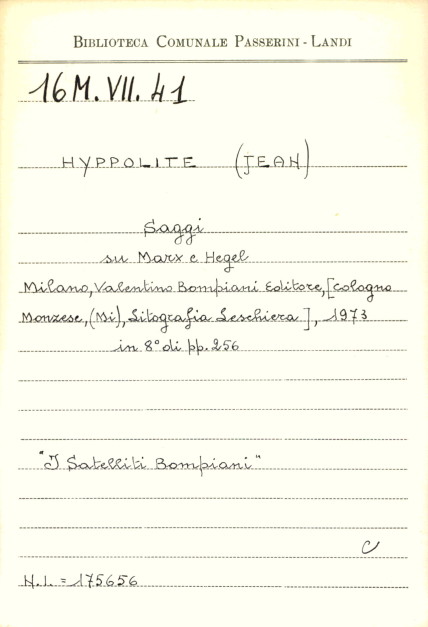 BIBLIOTECA COMUNALE PASSERINI - LANDI
16 M. VII. 41
HYPPOLITE (JEAN)
Saggi
su Marx e Hegel
Milano, Valentino Bompiani Editore, [Cologno
Monzese, (Mi), Litografia Leschiera], 1973
in 8° di pp. 256
"I Satelliti Bompiani"
C
N.I. = 175656